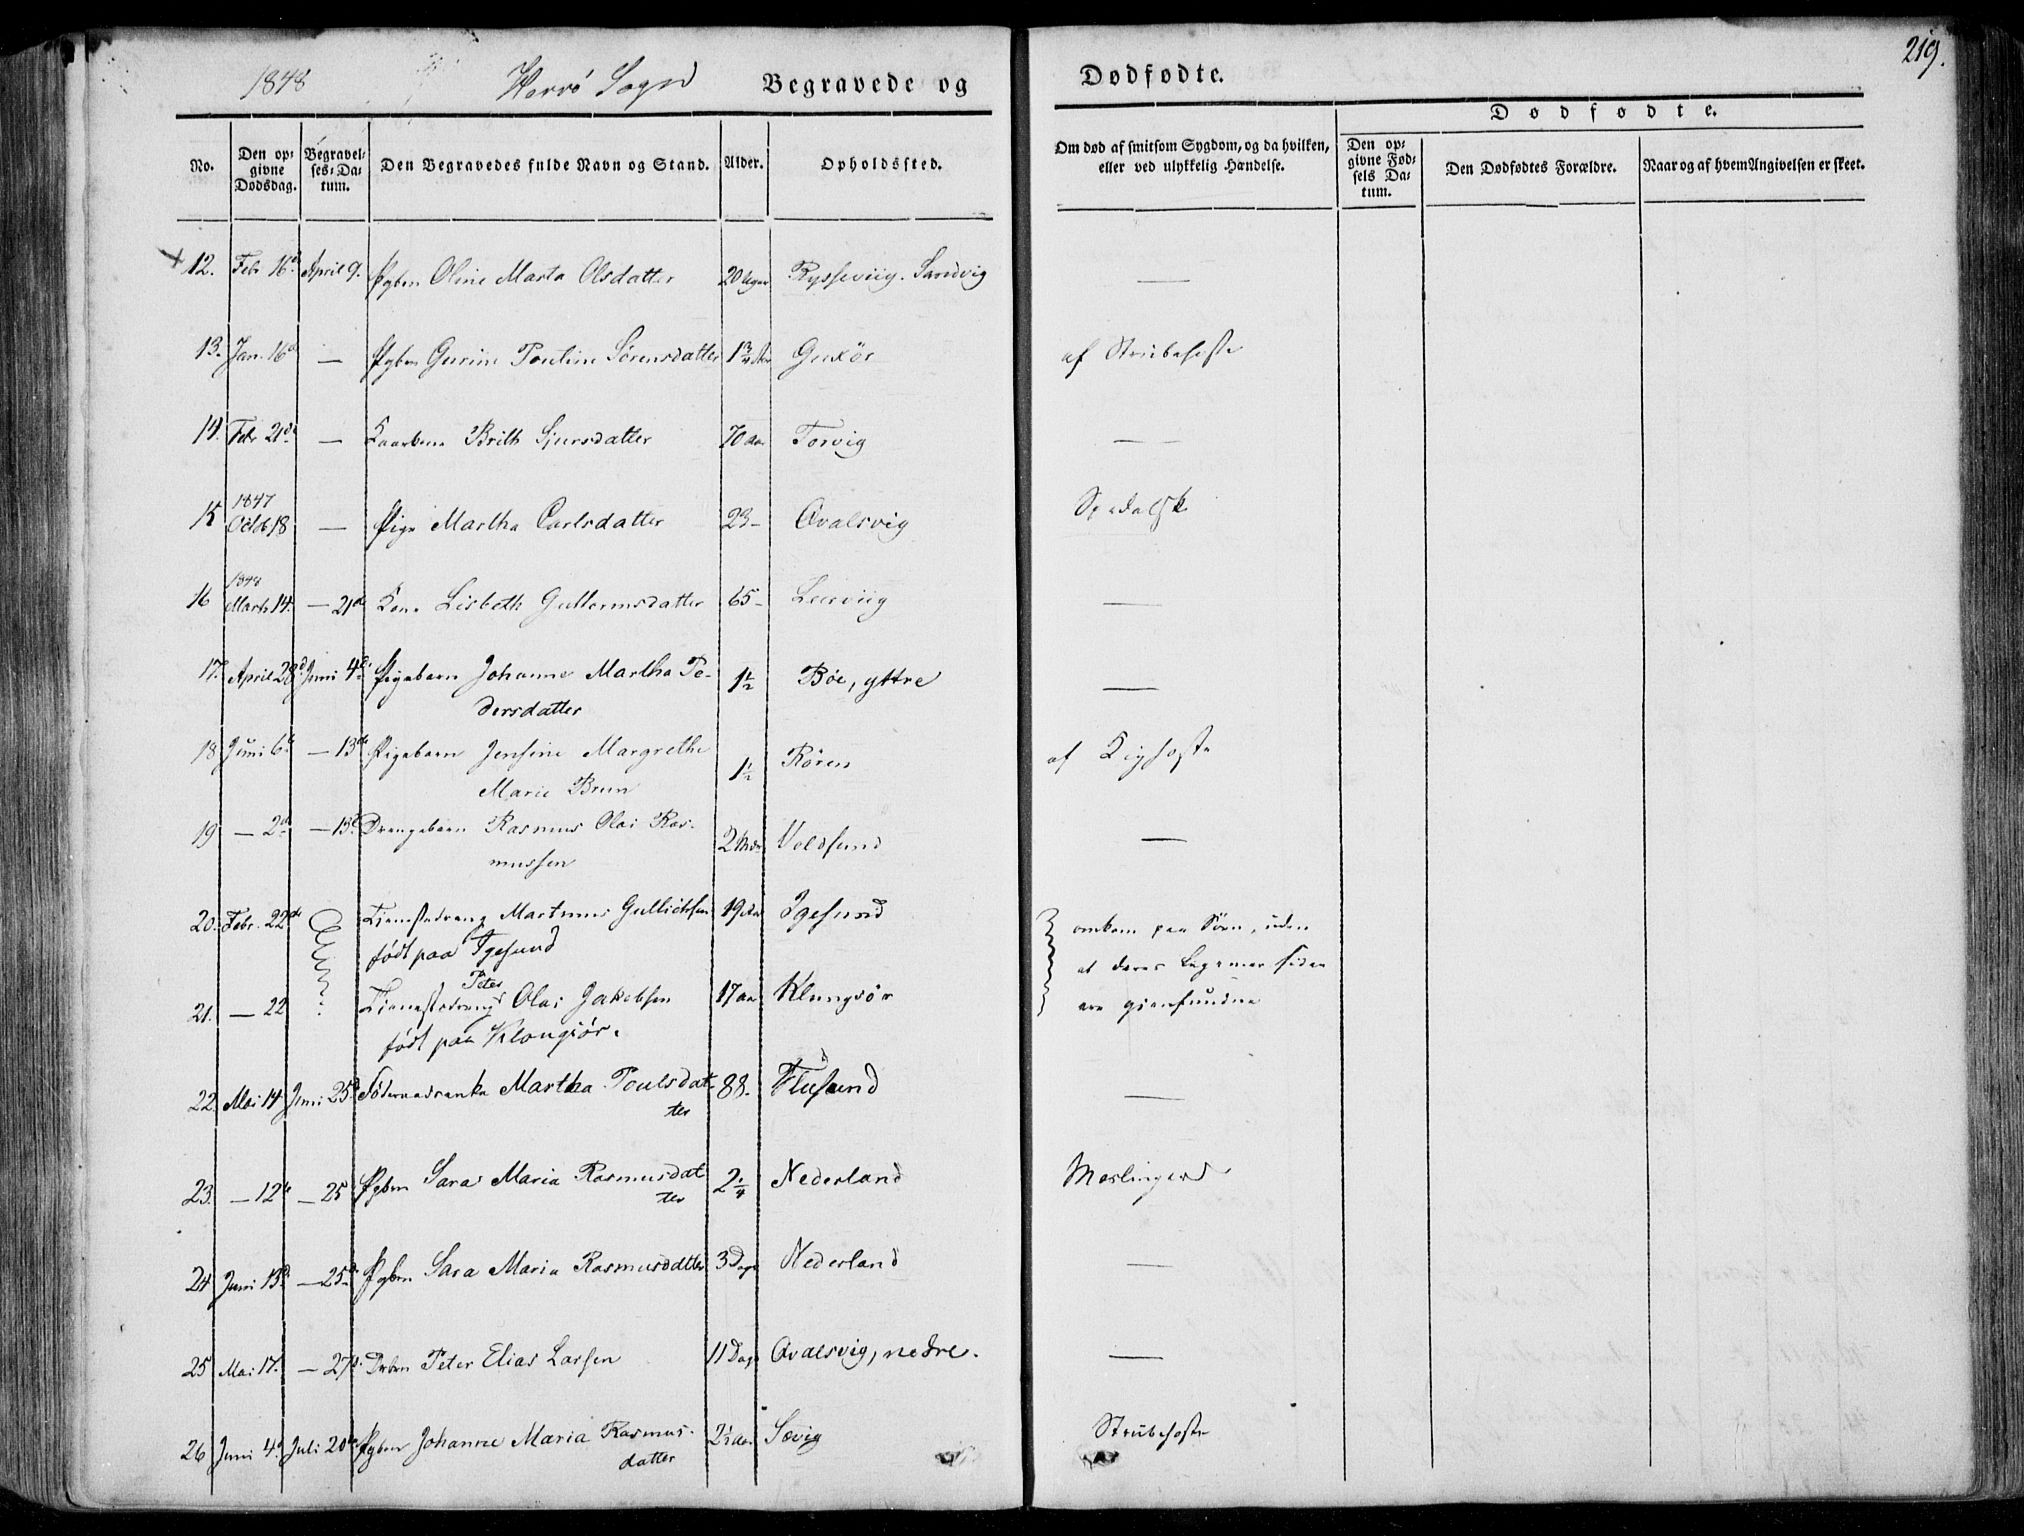 219.
1848 Herrö Sogn Begravede og Dødfødte.
Dødfødte.
No. Den opgivne Dødsdag. Begravelses-Datum. Den Begravedes fulde Navn og Stand. Alder. Opholdssted. Om død af smitsom Sygdom, og da hvilken, eller ved ulykkelig Hændelse. Den opgivne Fødsels Datum. Den Dødfødtes Forældre. Naar og af hvem Angivelsen er skeet.
+ 12. Febr 16d April 9. Pgbrn Oline Marta Olsdatter 20 Uger Rysseviig. Sandvig —
13. Jan. 16d — Pgbrn Gurine Pouline Sörensdatter 1 3/4 Aar Guxör af Strubehoste
14. Febr 21d — Kaarkone Brith Sjursdatter 70 Aar Torvig —
15 1847 Octb 18 — Pige Martha Carlsdatter 23 – Qvalsvig Spedalsk
16 1848 Marts 14. — 21de Kone Lisbeth Guttormsdatter 65 – Leerviig —
17. April 28d Juni 4d Pigebarn Johanne Martha Pe-
dersdatter 1 1/2 Böe, yttre —
18 Juni 6d — 13de Pigebarn Jensine Margrethe
Marie Brun 1 1/2 Røren af Kighoste
19 — 2d — 13d Drengebarn Rasmus Olai Ras-
mussen 2 Mdr Voldsund —
20. Febr. 22de Tjenestedreng Martinus Gullichsen 19 Aar Igesund omkom paa Söen, uden
født paa Igesund at deres Legemer siden
Peter
21. — 22 Tjenestedreng Olai Jakobsen 17 Aar Klungsör ere gjenfundne
født paa Klongsör.
22. Mai 14 Juni 25d Föderaadsenke Martha Poulsdat-
ter 88. Flusund —
23. — 12te — 25 Pgbrn Sara Maria Rasmusdat
ter 2 1/4 Nederland Meslinger
24 Juni 13d — 25d Pgbrn Sara Maria Rasmusdatter 3 Dage Nederland —
25 Mai 17. — 27d. Drbrn Peter Elias Larsen 11 Dage Qvalsvig, nedre. —
26 Juni 4d Juli 20de Pgbrn Johanne Maria Rasmus-
datter 2 1/2 Aar Sævig Strubehoste